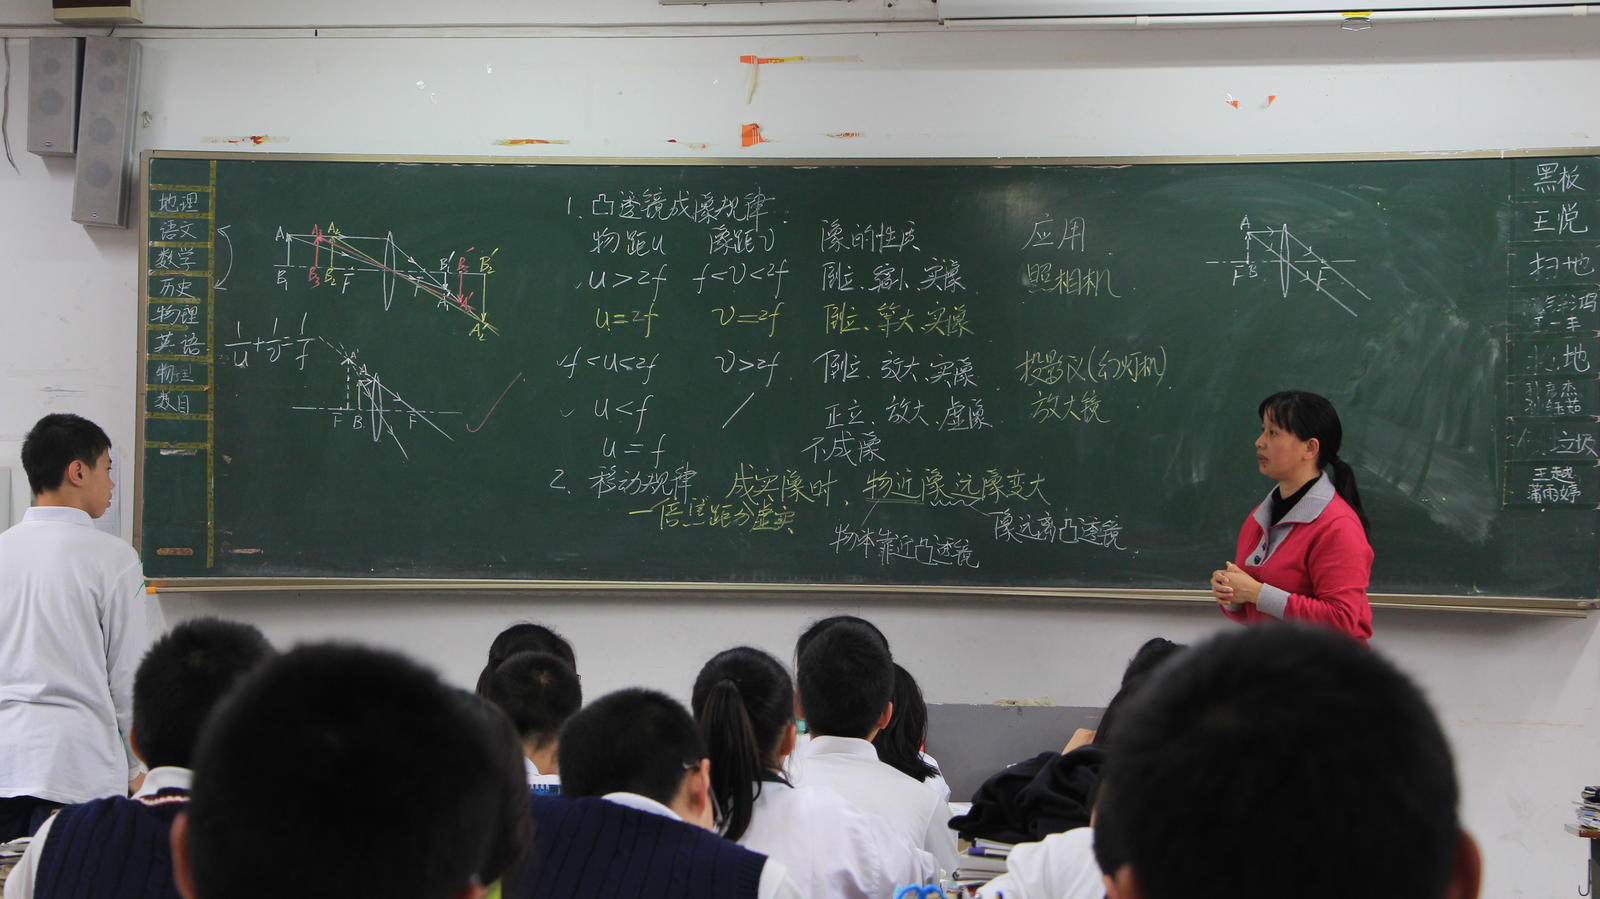 地理
语文
数学
历史
物理
英语
物理
1. 凸透镜成像规律.
物距u 像距v 像的性质 应用
u>2f f<v<2f 倒立、缩小、实像 照相机
u=2f v=2f 倒立、等大、实像
f<u<2f v>2f 倒立、放大、实像 投影仪(幻灯机)
u<f / 正立、放大、虚像 放大镜
u=f 不成像
2. 移动规律 成实像时,物近像远像变大
一倍焦距分虚实
物体靠近凸透镜 像远离凸透镜
A A₃ A₂
B₁ B₃ B₂ F F B₁′ B₃′ B₂′
A₂′
1/u+1/v=1/f
A′
A
F B F
A
F B F
黑板
王悦
扫地
地
垃圾
王越
蒲雨婷